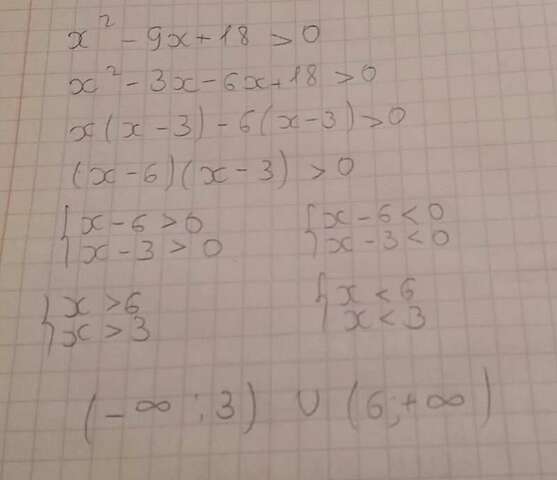 x² - 9x + 18 > 0
x² - 3x - 6x + 18 > 0
x(x - 3) - 6(x - 3) > 0
(x - 6)(x - 3) > 0
{x - 6 > 0 {x - 6 < 0
{x - 3 > 0 {x - 3 < 0
{x > 6 {x < 6
{x > 3 {x < 3
(-∞ ; 3) ∪ (6; +∞)